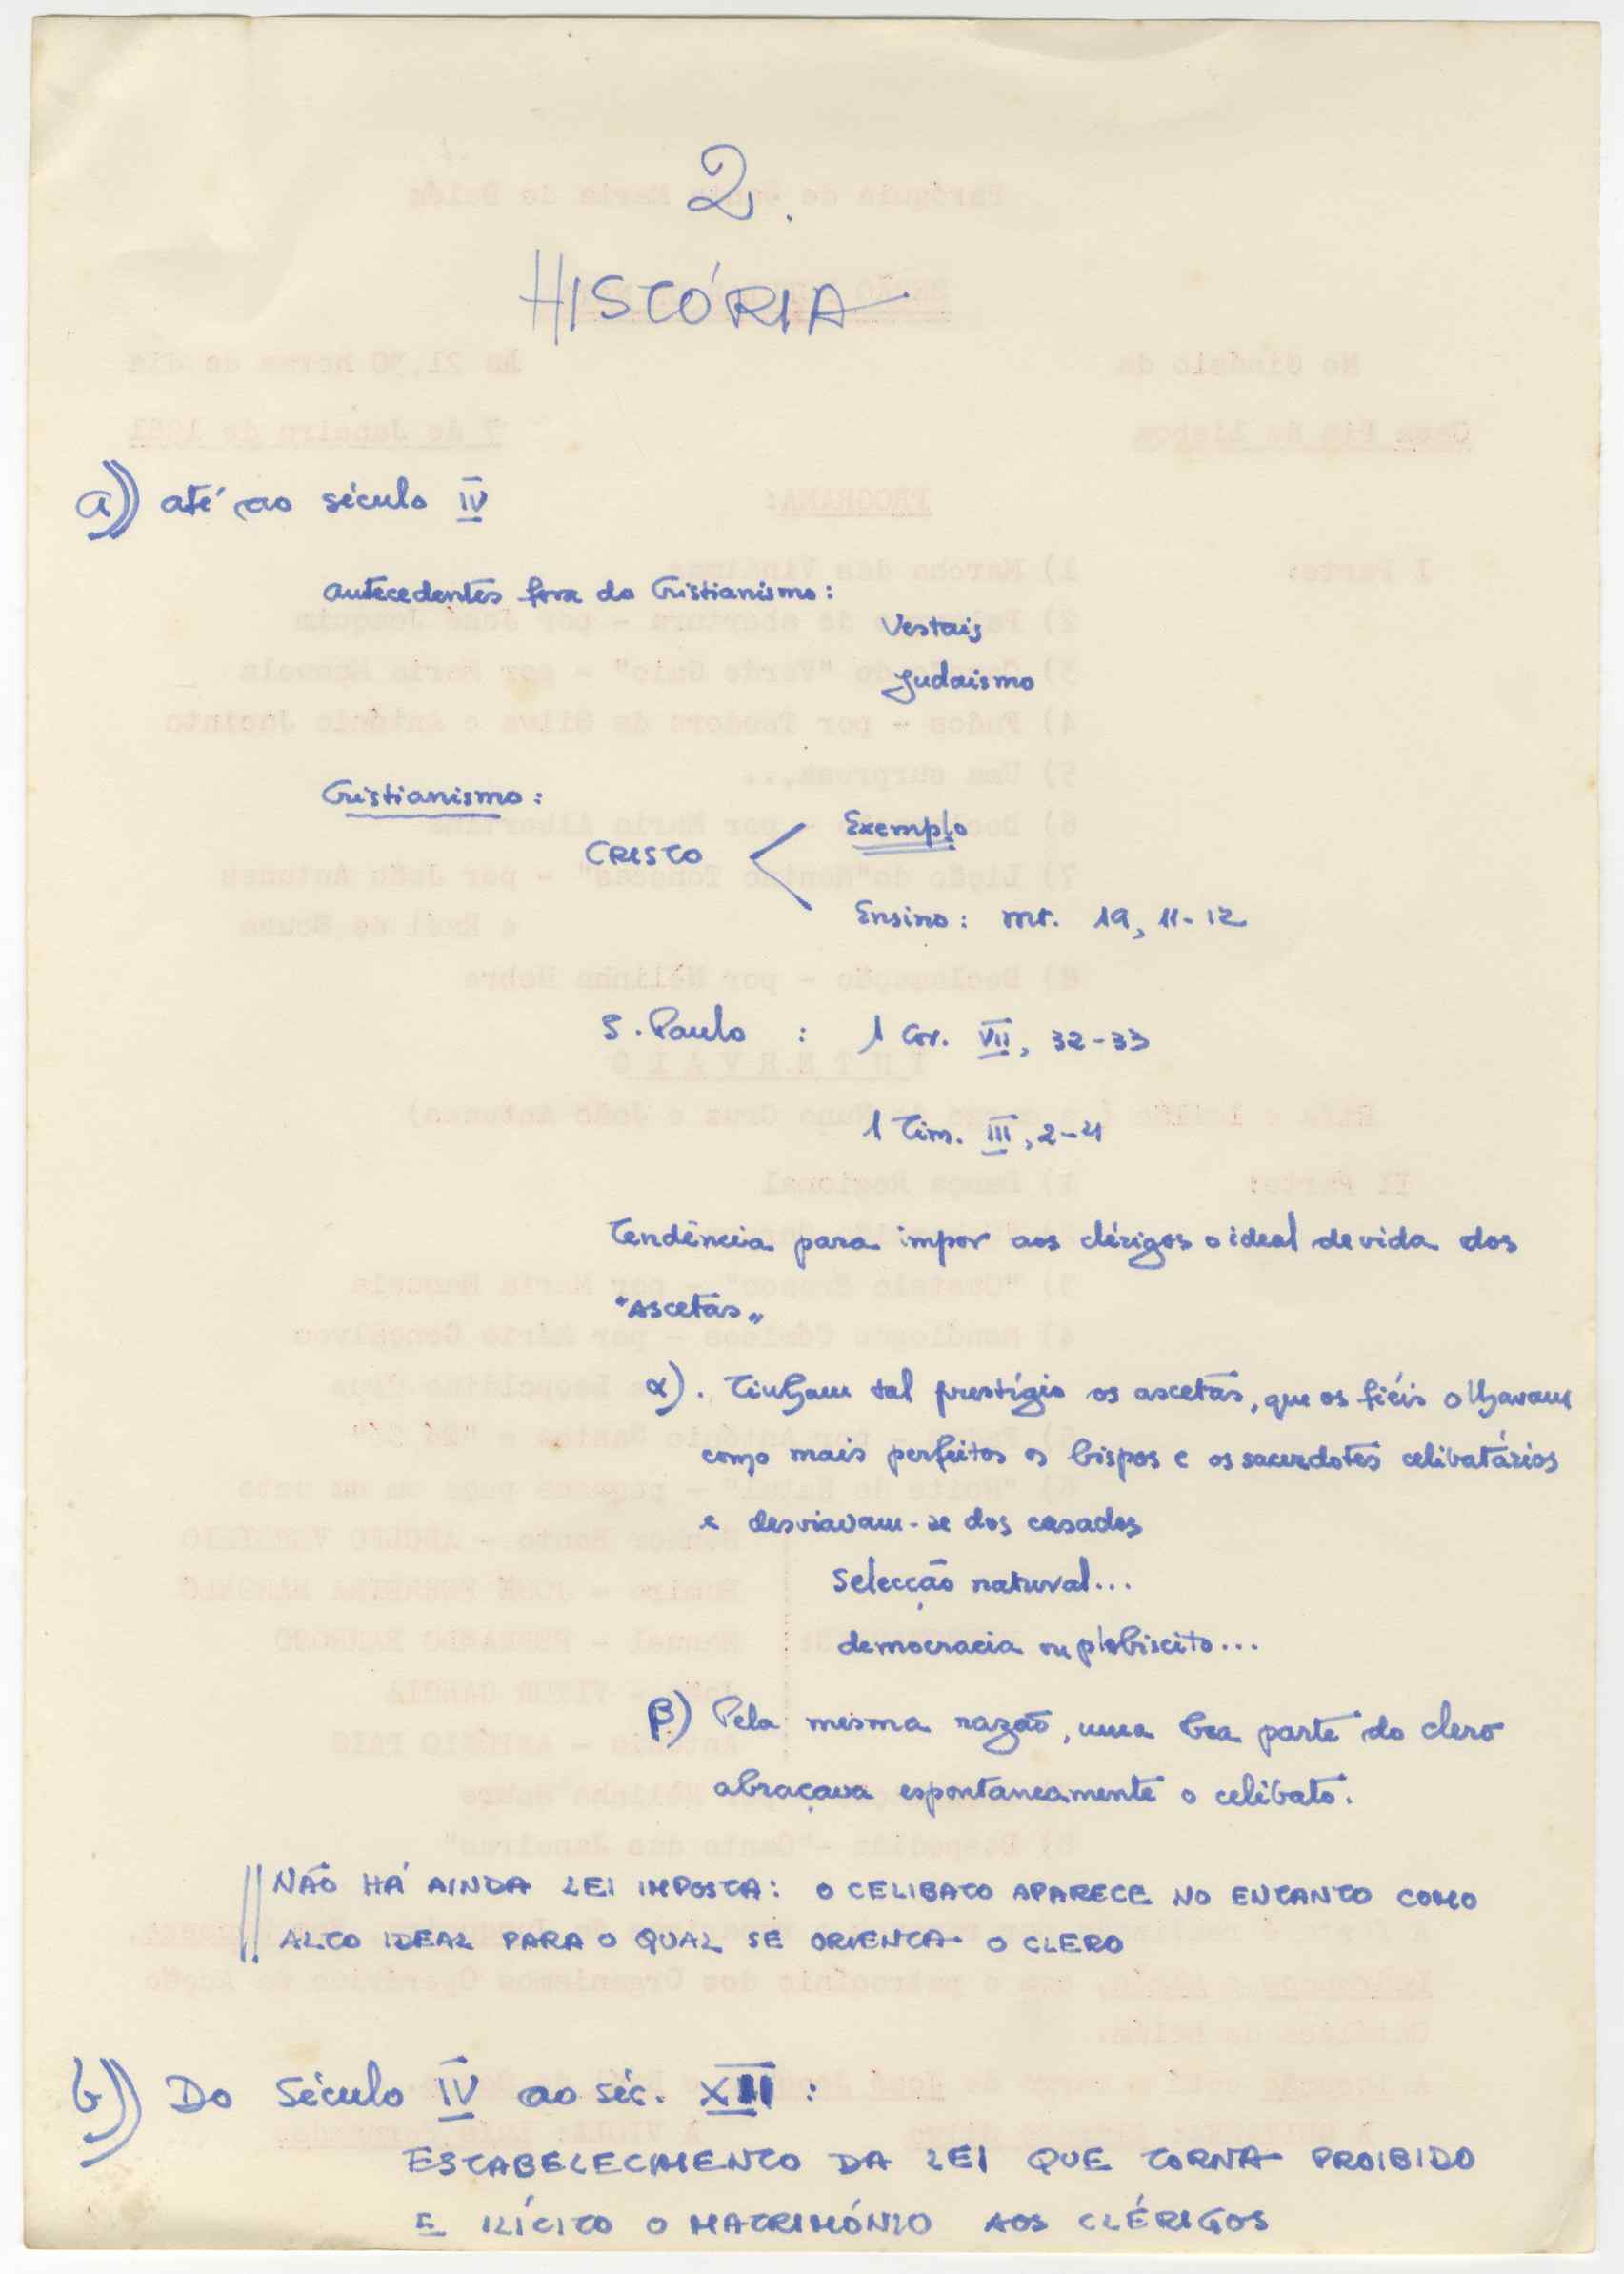 2.
HISTÓRIA
a)) até ao século IV
Antecedentes fora do Cristianismo:
Vestais
Judaismo
Cristianismo:
CRISTO < Exemplo
Ensino: Mt. 19, 11-12
S. Paulo : 1 Cor. VII, 32-33
1 Tim. III, 2-4
Tendência para impor aos clérigos o ideal de vida dos
"Ascetas"
α). Tinham tal prestígio os ascetas, que os fiéis olhavam
como mais perfeitos os bispos e os sacerdotes celibatários
e desviavam-se dos casados
Selecção natural...
democracia ou plebiscito...
β) Pela mesma razão, uma boa parte do clero
abraçava espontaneamente o celibato.
NÃO HÁ AINDA LEI IMPOSTA: O CELIBATO APARECE NO ENTANTO COMO
ALTO IDEAL PARA O QUAL SE ORIENTA O CLERO
b)) Do Século IV ao séc. XII :
ESTABELECIMENTO DA LEI QUE TORNA PROIBIDO
E ILÍCITO O MATRIMÓNIO AOS CLÉRIGOS